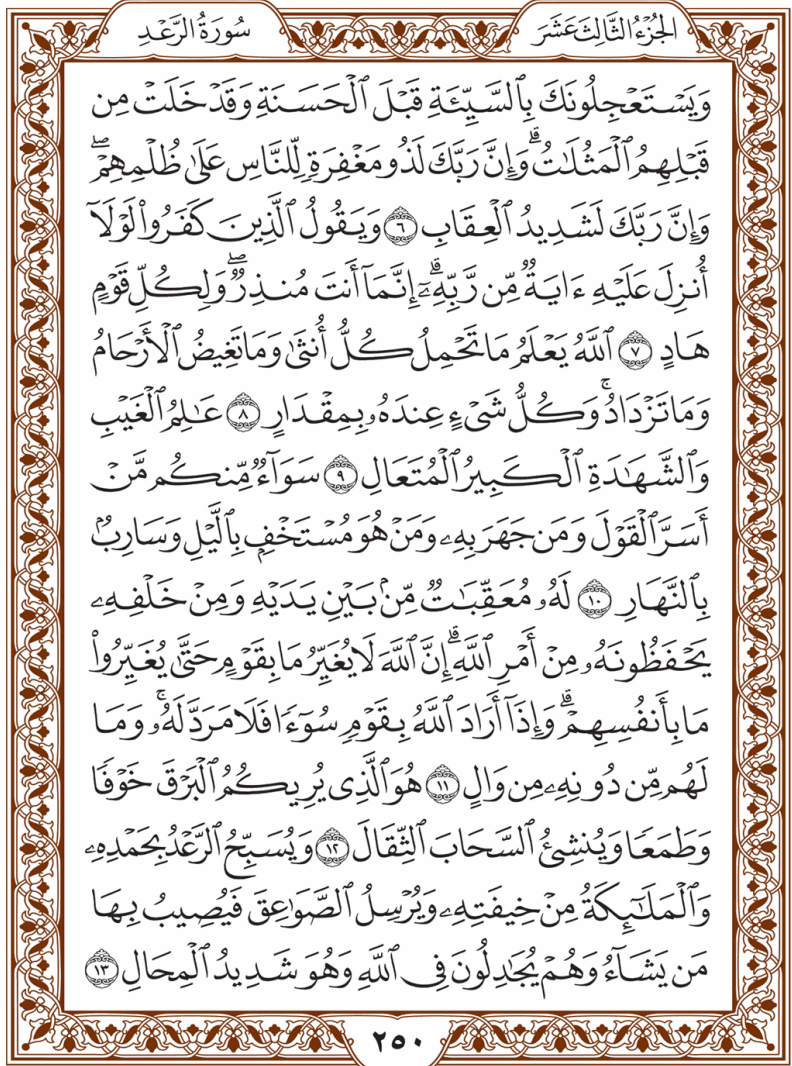 الجُزْءُ الثَّالِثَ عَشَرَ
سُورَةُ الرَّعْدِ
وَيَسْتَعْجِلُونَكَ بِٱلسَّيِّئَةِ قَبْلَ ٱلْحَسَنَةِ وَقَدْ خَلَتْ مِن
قَبْلِهِمُ ٱلْمَثُلَٰتُۗ وَإِنَّ رَبَّكَ لَذُو مَغْفِرَةٍ لِّلنَّاسِ عَلَىٰ ظُلْمِهِمْۖ
وَإِنَّ رَبَّكَ لَشَدِيدُ ٱلْعِقَابِ ٦ وَيَقُولُ ٱلَّذِينَ كَفَرُوا۟ لَوْلَآ
أُنزِلَ عَلَيْهِ ءَايَةٌ مِّن رَّبِّهِۦٓۗ إِنَّمَآ أَنتَ مُنذِرٌۖ وَلِكُلِّ قَوْمٍ
هَادٍ ٧ ٱللَّهُ يَعْلَمُ مَا تَحْمِلُ كُلُّ أُنثَىٰ وَمَا تَغِيضُ ٱلْأَرْحَامُ
وَمَا تَزْدَادُۚ وَكُلُّ شَىْءٍ عِندَهُۥ بِمِقْدَارٍ ٨ عَٰلِمُ ٱلْغَيْبِ
وَٱلشَّهَٰدَةِ ٱلْكَبِيرُ ٱلْمُتَعَالِ ٩ سَوَآءٌ مِّنكُم مَّنْ
أَسَرَّ ٱلْقَوْلَ وَمَن جَهَرَ بِهِۦ وَمَنْ هُوَ مُسْتَخْفٍۭ بِٱلَّيْلِ وَسَارِبٌۢ
بِٱلنَّهَارِ ١٠ لَهُۥ مُعَقِّبَٰتٌ مِّنۢ بَيْنِ يَدَيْهِ وَمِنْ خَلْفِهِۦ
يَحْفَظُونَهُۥ مِنْ أَمْرِ ٱللَّهِۗ إِنَّ ٱللَّهَ لَا يُغَيِّرُ مَا بِقَوْمٍ حَتَّىٰ يُغَيِّرُوا۟
مَا بِأَنفُسِهِمْۗ وَإِذَآ أَرَادَ ٱللَّهُ بِقَوْمٍ سُوٓءًا فَلَا مَرَدَّ لَهُۥۚ وَمَا
لَهُم مِّن دُونِهِۦ مِن وَالٍ ١١ هُوَ ٱلَّذِى يُرِيكُمُ ٱلْبَرْقَ خَوْفًا
وَطَمَعًا وَيُنشِئُ ٱلسَّحَابَ ٱلثِّقَالَ ١٢ وَيُسَبِّحُ ٱلرَّعْدُ بِحَمْدِهِۦ
وَٱلْمَلَٰٓئِكَةُ مِنْ خِيفَتِهِۦ وَيُرْسِلُ ٱلصَّوَٰعِقَ فَيُصِيبُ بِهَا
مَن يَشَآءُ وَهُمْ يُجَٰدِلُونَ فِى ٱللَّهِ وَهُوَ شَدِيدُ ٱلْمِحَالِ ١٣
٢٥٠